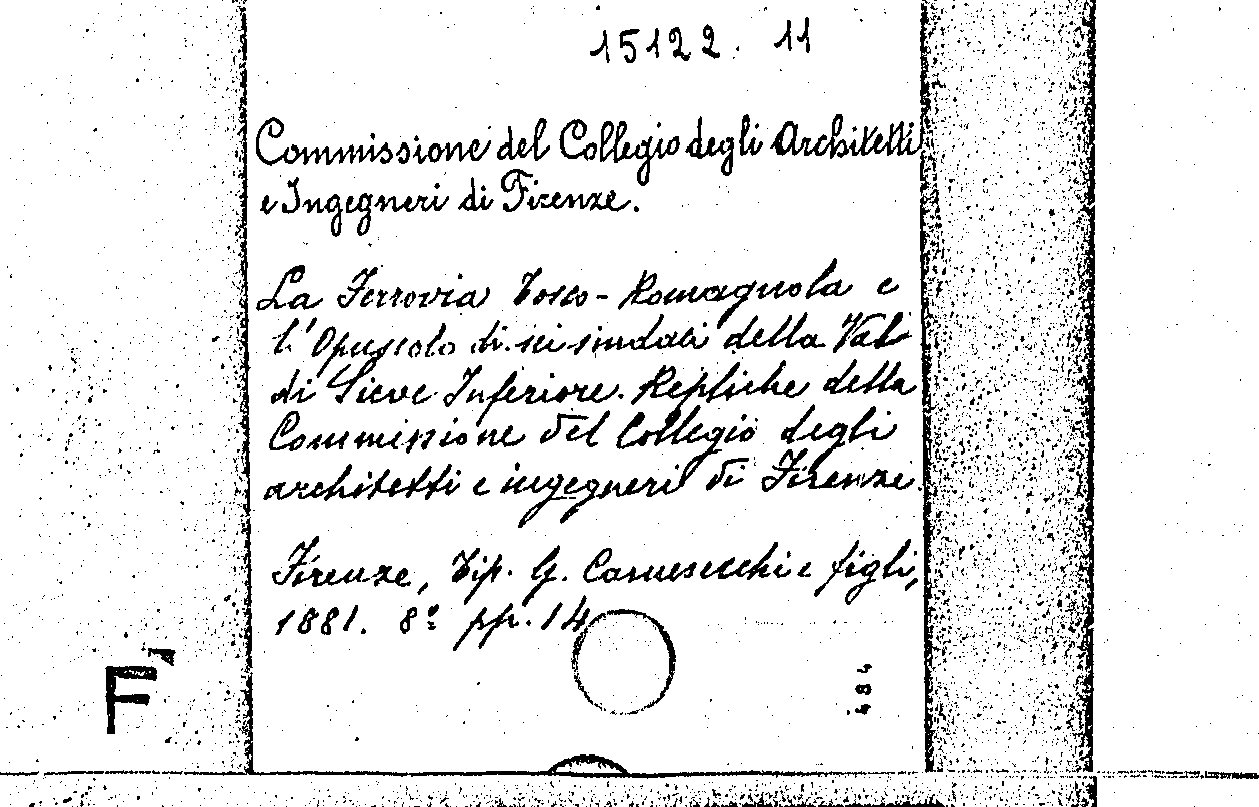 15122. 11
Commissione del Collegio degli Architetti
e Ingegneri di Firenze.
La Ferrovia Tosco-Romagnola e
l'Opuscolo di sei sindaci della Val
di Sieve Inferiore. Repliche della
Commissione del Collegio degli
architetti e ingegneri di Firenze.
Firenze, Tip. G. Carnesecchi e figli,
1881. 8º pp. 14
484
F